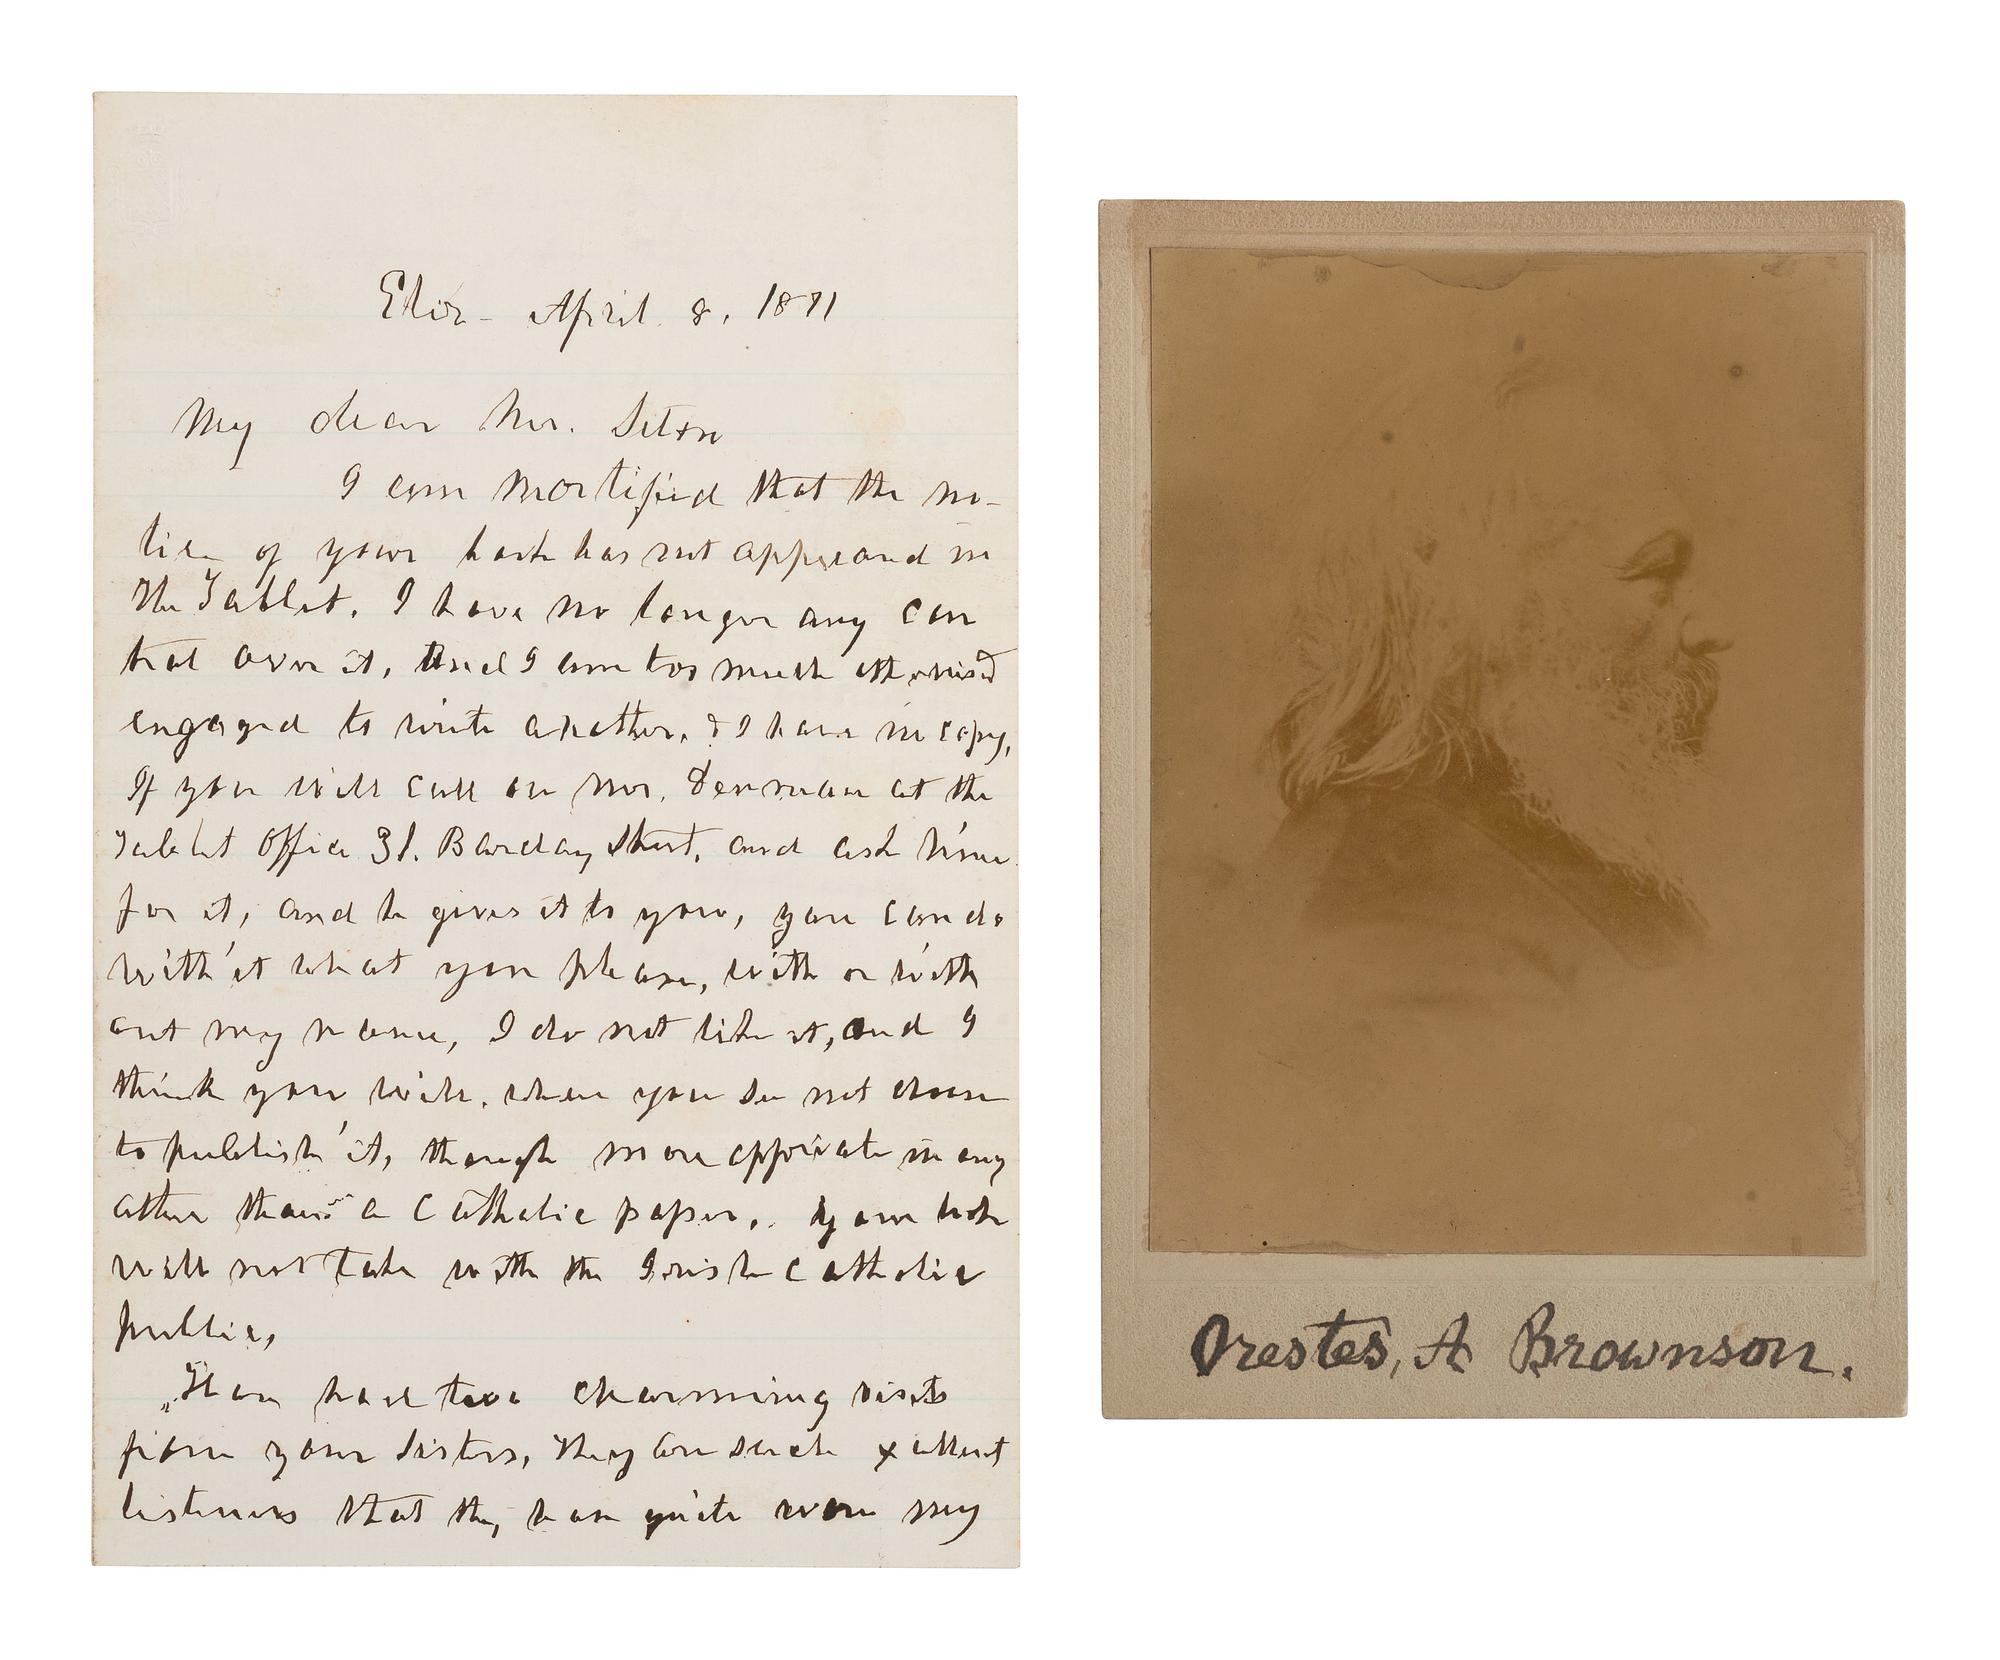 Eliz - April 8, 1871
My dear Mr. Seton
I am mortified that the no-
tice of your book has not appeared in
the Tablet. I have no longer any con
trol over it, and I am too much otherwise
engaged to write another, & I have no copy,
If you will call on Mr. Denman at the
Tablet Office 31. Barclay Street, and ask him
for it, and he gives it to you, you can do
with it what you please, with or with
out my name, I do not like it, and I
think you will, when you see not choose
to publish it, though more appropriate in any
other than a Catholic paper,. Your book
will not take with the Irish Catholic
public,
I have had two charming visits
from your Sisters, They are such excellent
listeners that they have quite won my
Orestes, A Brownson.